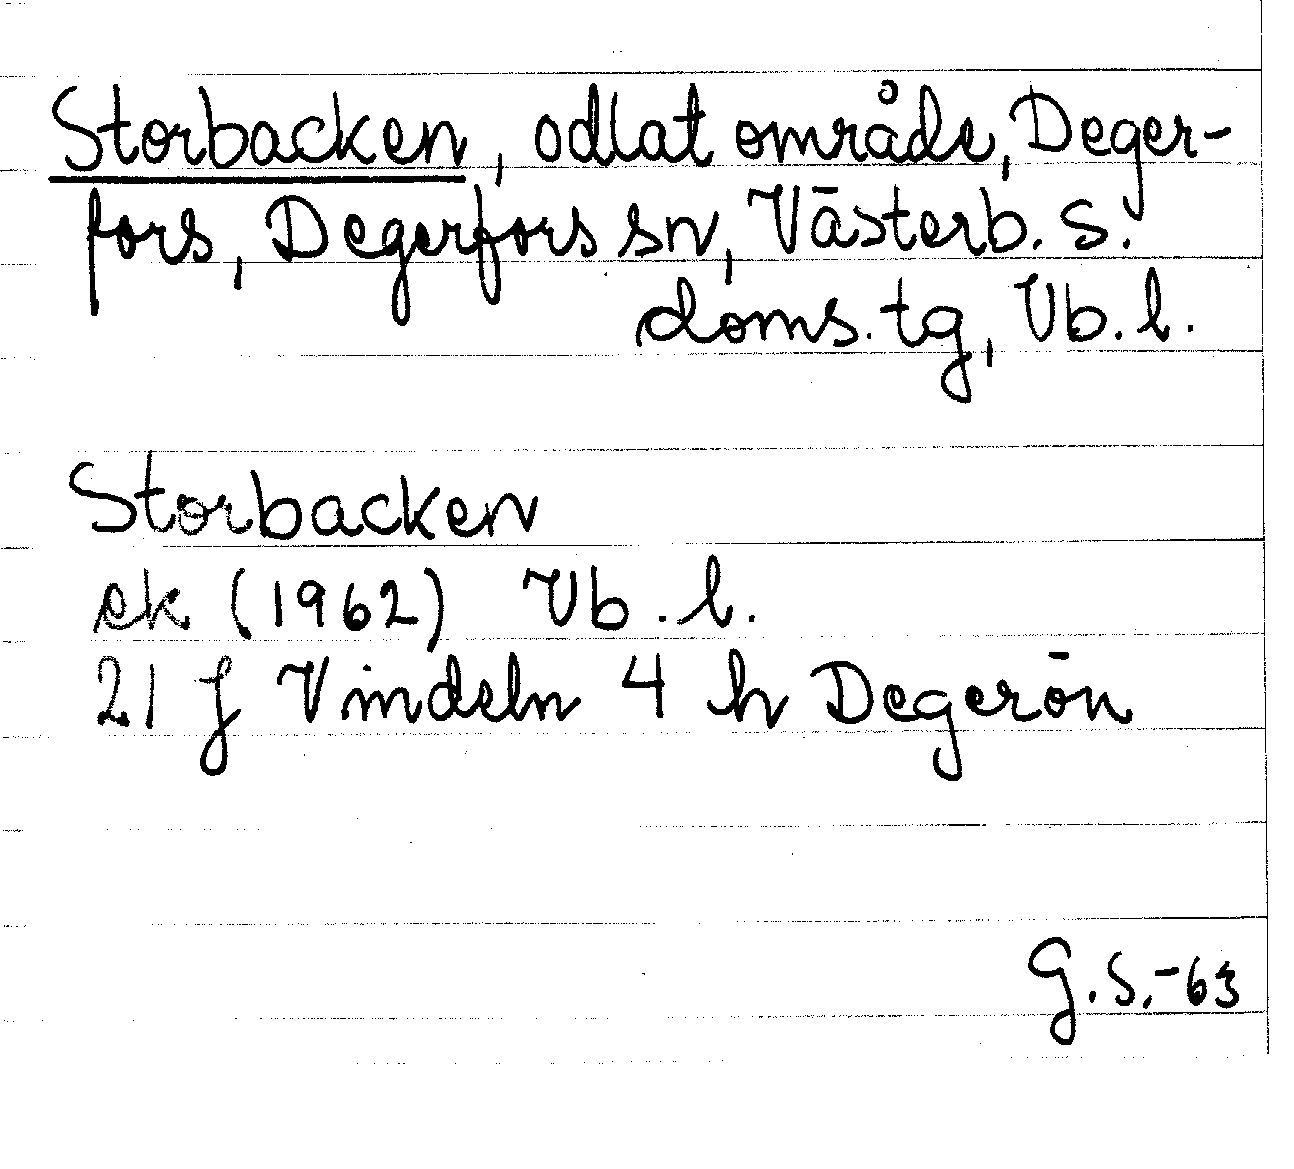 Storbacken, odlat område, Deger-
fors, Degerfors sn, Västerb. s.
doms. tg, Vb. l.
Storbacken
ek (1962) Vb. l.
21 J Vindeln 4 h Degerön
G.S.-63